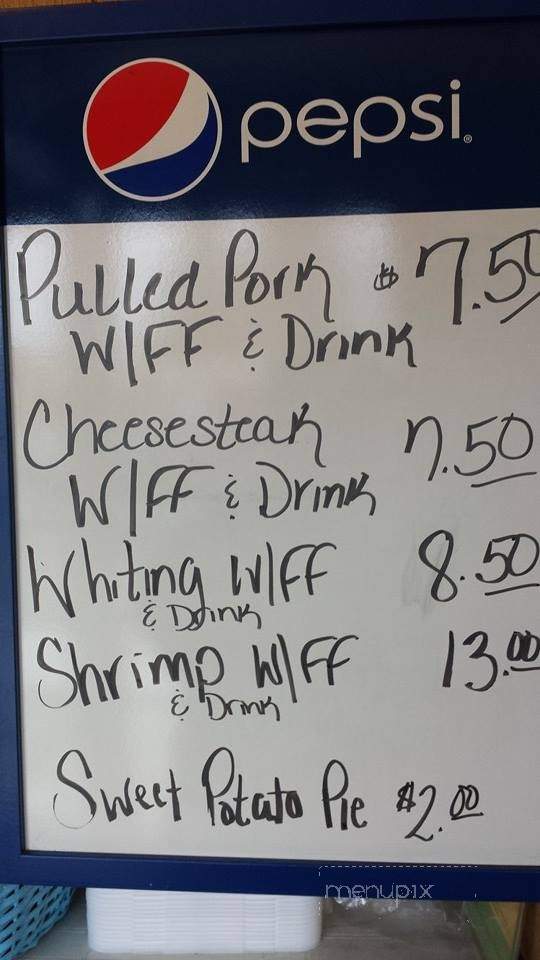 pepsi®
Pulled Pork $7.50
W/FF & Drink
Cheesesteak 7.50
W/FF & Drink
Whiting W/FF 8.50
& Drink
Shrimp W/FF 13.00
& Drink
Sweet Potato Pie $2.00
menupix